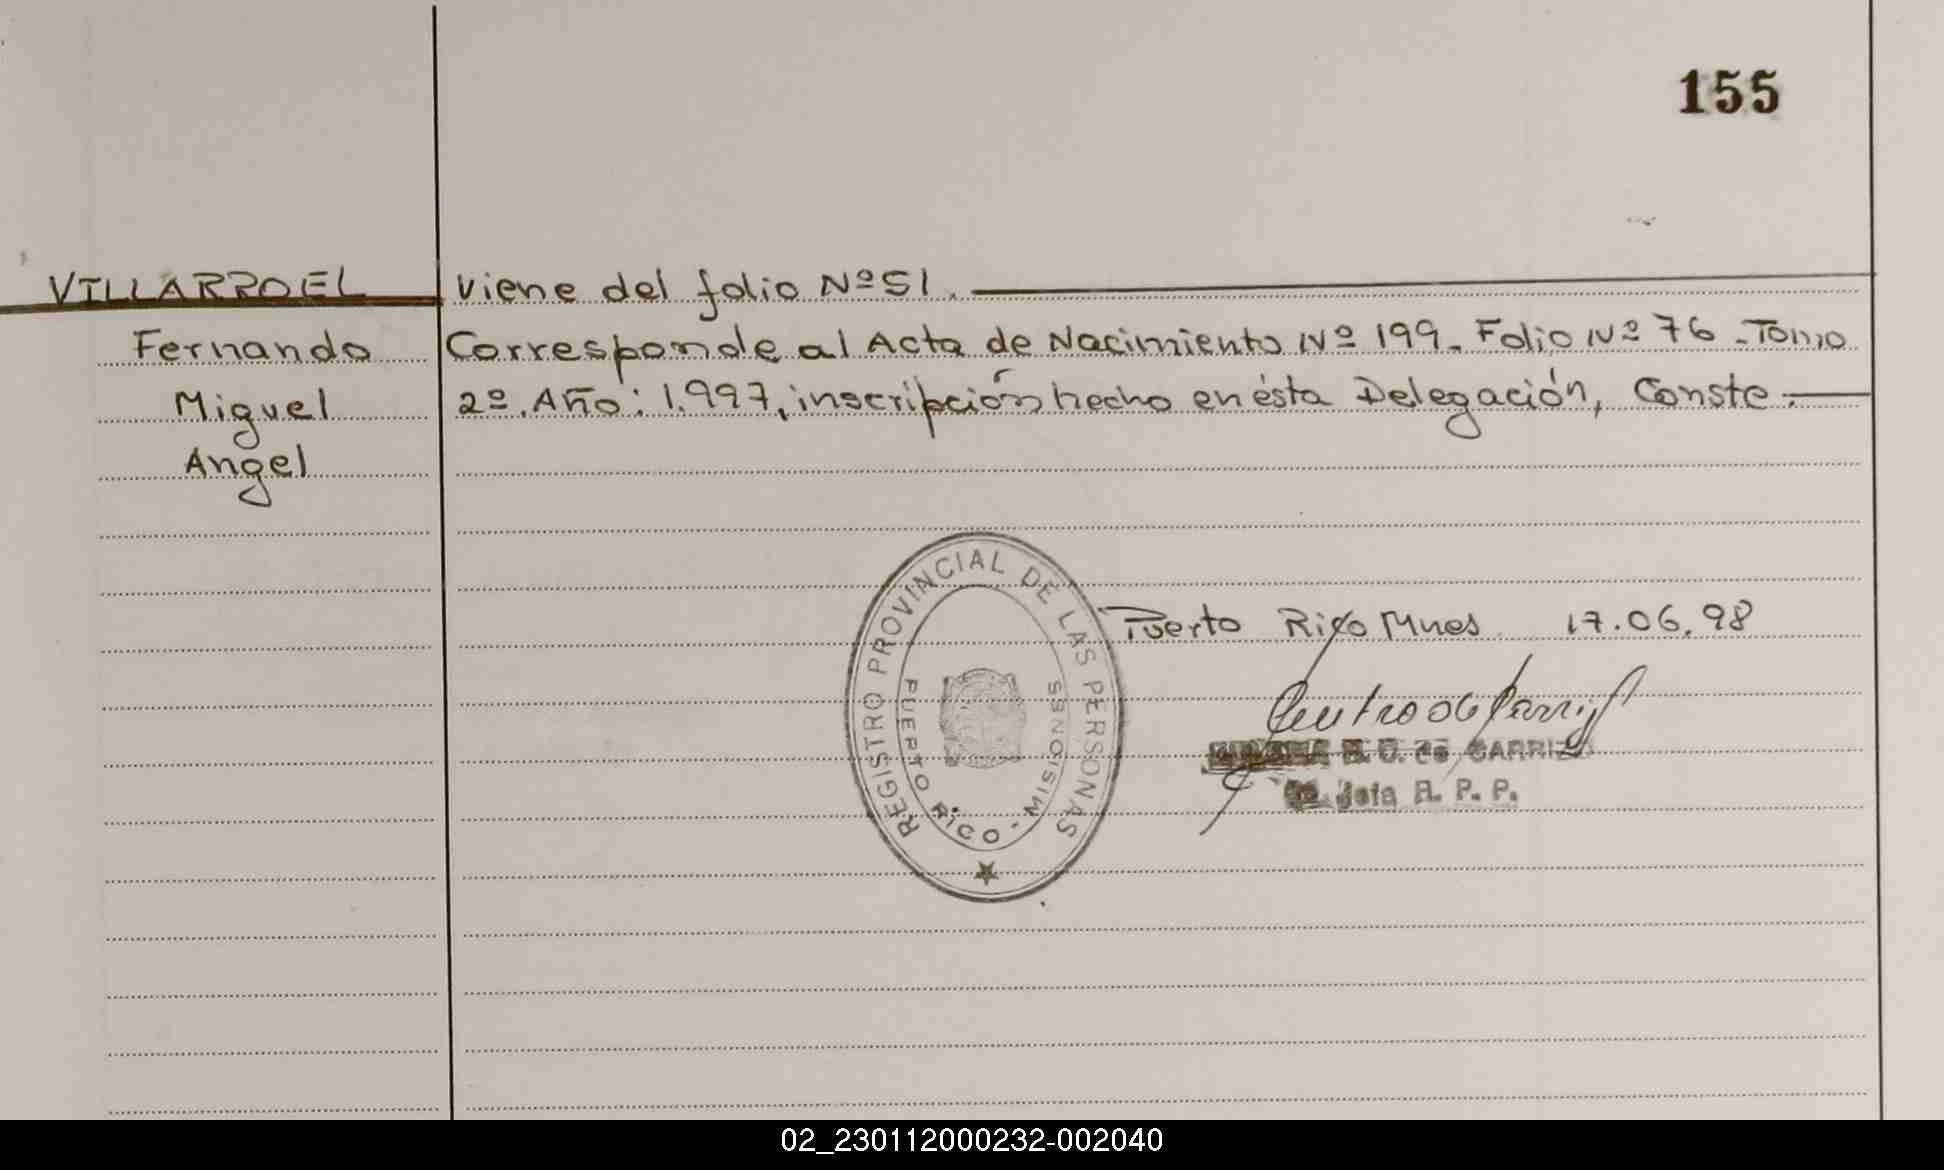 155
VILLARROEL
Viene del folio Nº 51.
Fernando
Corresponde al Acta de Nacimiento Nº 199. Folio Nº 76 - Tomo
Miguel
2º. Año: 1.997, inscripción hecho en ésta Delegación, Conste.
Angel
REGISTRO PROVINCIAL DE LAS PERSONAS
PUERTO RICO - MISIONES
Puerto Rico Mnes 17.06.98
B. U. de CARRIZO
Jefa R. P. P.
02_230112000232-002040